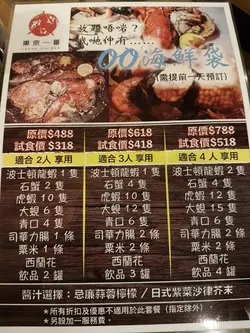 東京一番
放題唔啱?
我哋仲有......
OO海鮮袋
(需提前一天預訂)
原價$488 原價$618 原價$788
試食價$318 試食價$418 試食價$518
適合2人 享用 適合3人 享用 適合 4人 享用
波士頓龍蝦1隻 波士頓龍蝦1隻 波士頓龍蝦2隻
石蟹 2 隻 石蟹 4 隻 石蟹 4 隻
虎蝦 10 隻 虎蝦 12 隻 虎蝦 15 隻
大蜆 6 隻 大蜆 12 隻 大蜆 15 隻
青口 4 隻 青口 6 隻 青口 8 隻
司華力腸 1 條 司華力腸 2 條 司華力腸 2 條
粟米 1 條 粟米 2 條 粟米 2 條
西蘭花 西蘭花 西蘭花
飲品 2 罐 飲品 3 罐 飲品 4 罐
醬汁選擇:忌廉蒜蓉檸檬/日式紫菜沙律芥末
*所有折扣及優惠不適用於此套餐(指定除外)
*另設加一服務費。